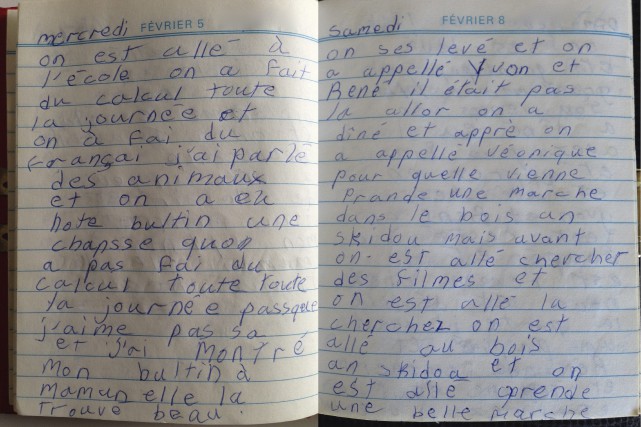 mercredi FÉVRIER 5
on est allé à
l'école on a fait
du calcul toute
la journée et
on à fai du
françai j'ai parlé
des animaux
et on a eu
hote bultin une
chansse quon
a pas fai du
calcul toute toute
la journée passque
j'aime pas sa
et j'ai montré
mon bultin à
maman elle la
trouve beau.
samedi FÉVRIER 8
on ses levé et on
a appellé Yvon et
René il était pas
la allor on a
diné et apprè on
a appellé véonique
pour quelle vienne
prande une marche
dans le bois an
skidou mais avant
on est allé chercher
des filmes et
on est allé la
cherchez on est
allé au bois
an skidou et on
est allé prende
une belle marche